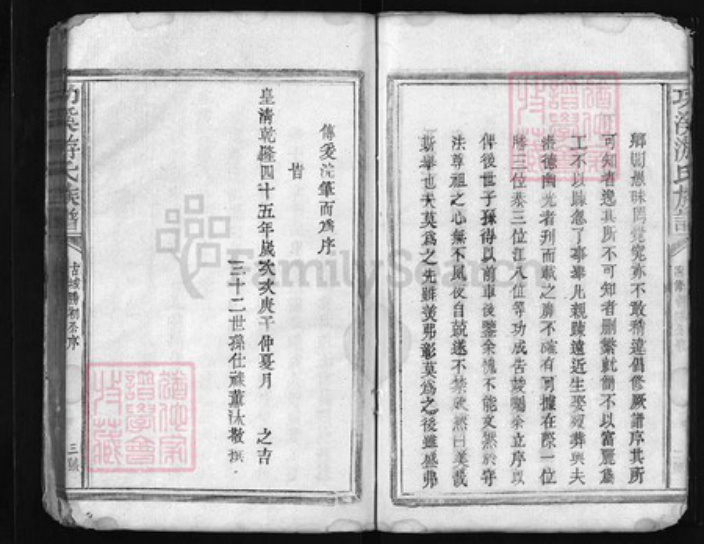 功溪游氏族譜
鄉閭愚昧罔覺究亦不敢稍違倡修厥譜序其所
可知者逸其所不可知者刪繁就簡不以富麗為
工不以踈忽了事舉凡親踈遠近生娶殁葬與夫
潛德幽光者刊而載之靡不確有可據在際一位
勝三位泰三位江八位等功成告竣囑余立序以
俾後世子孫得以前車後鑒余愧不能文然於守
法尊祖之心無不夙夜自兢遂不禁欣然曰美哉
斯舉也夫莫為之先雖美弗彰莫為之後雖盛弗
傳爰浣筆而為序
皆
皇清乾隆四十五年歲次庚子仲夏月 之吉
三十二世孫仕 董沐敬撰
功溪游氏族譜
古城勝 序
三號
FamilySearch
譜學會
藏
譜學會
藏